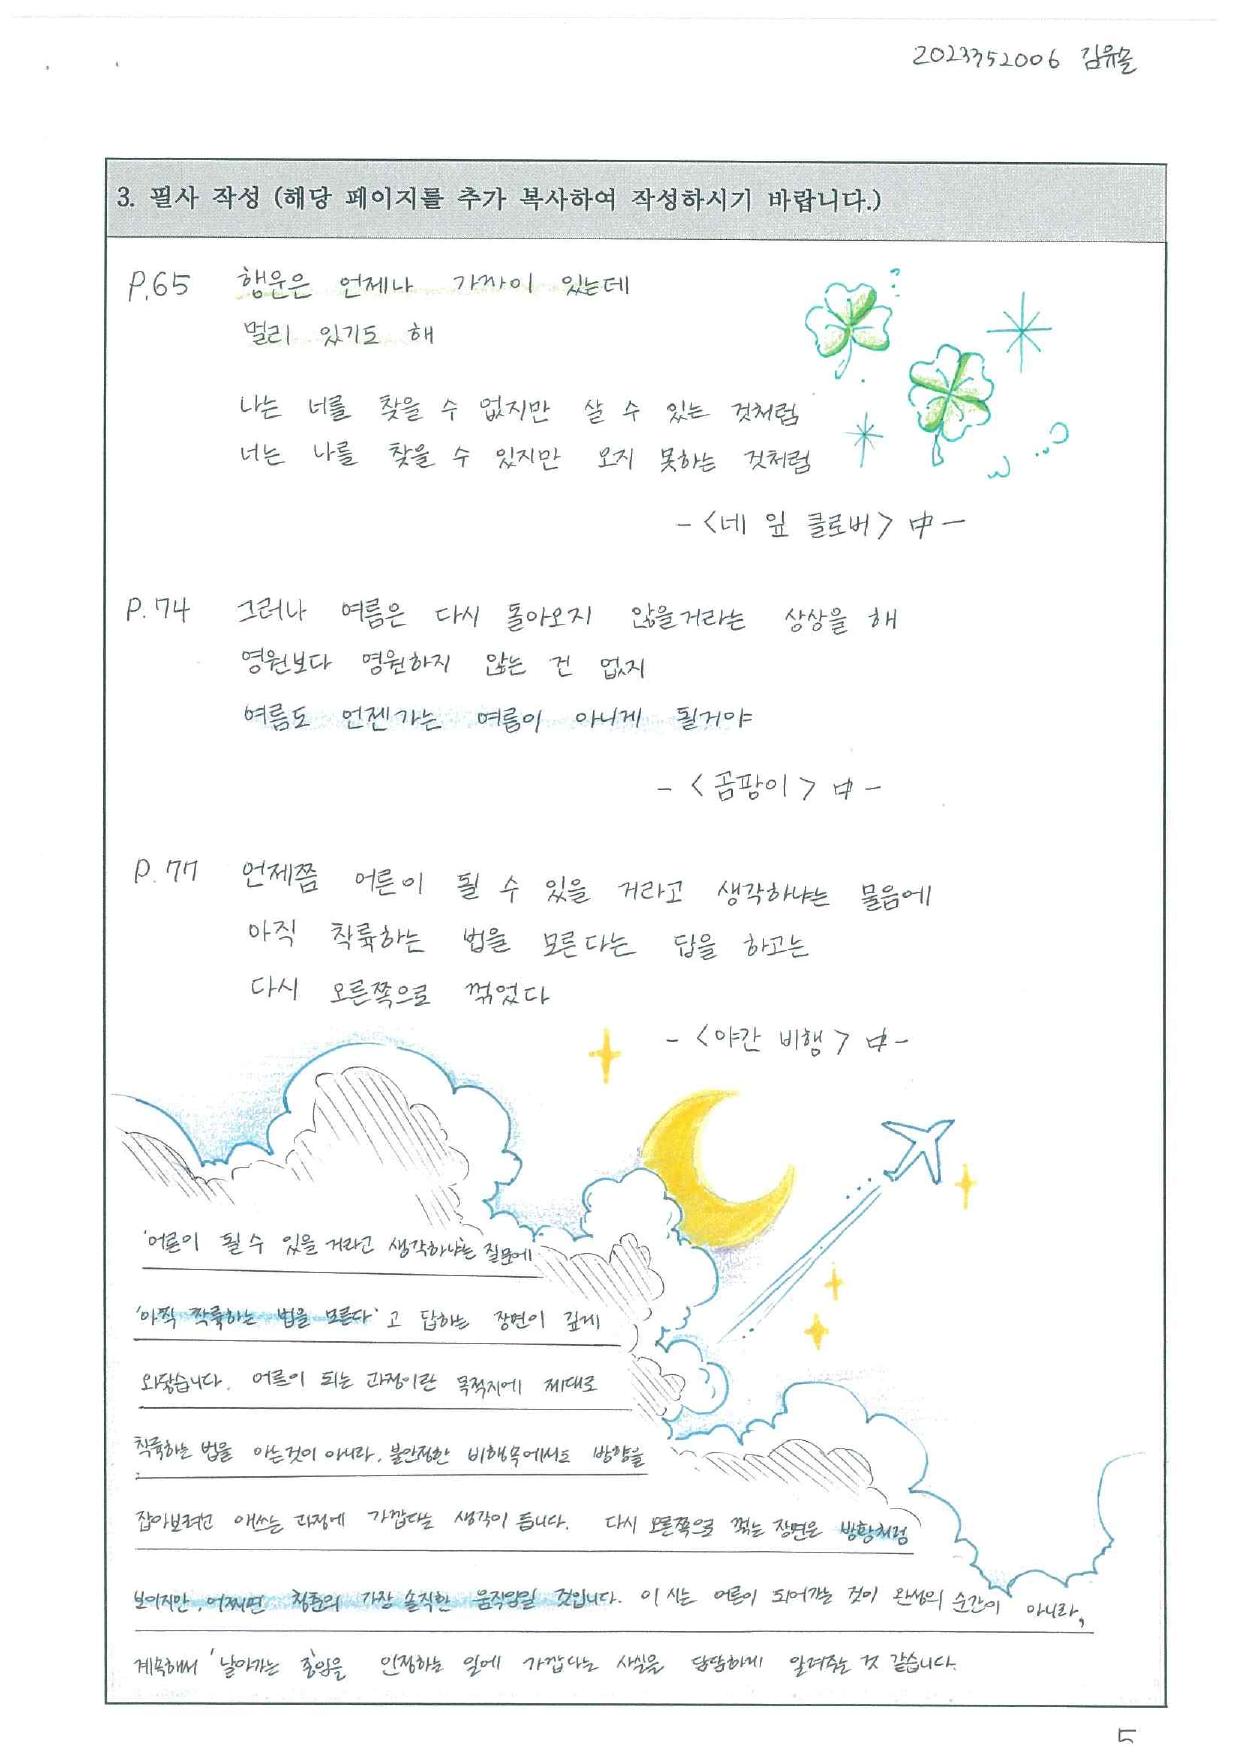 2023352006 김유몰
3. 필사 작성 (해당 페이지를 추가 복사하여 작성하시기 바랍니다.)
P.65 행운은 언제나 가까이 있는데
멀리 있기도 해
나는 너를 찾을 수 없지만 살 수 있는 것처럼
너는 나를 찾을 수 있지만 오지 못하는 것처럼
-<네 잎 클로버> 中-
P.74 그러나 여름은 다시 돌아오지 않을거라는 상상을 해
영원보다 영원하지 않는 건 없지
여름도 언젠가는 여름이 아니게 될거야
-<곰팡이> 中-
P.77 언제쯤 어른이 될 수 있을 거라고 생각하냐는 물음에
아직 착륙하는 법을 모른다는 답을 하고는
다시 오른쪽으로 꺾었다
-<야간 비행> 中-
'어른이 될 수 있을 거라고 생각하냐'는 질문에
'아직 착륙하는 법을 모른다'고 답하는 장면이 깊게
와닿습니다. 어른이 되는 과정이란 목적지에 제대로
착륙하는 법을 아는것이 아니라, 불안정한 비행속에서도 방향을
잡아보려고 애쓰는 과정에 가깝다는 생각이 듭니다. 다시 오른쪽으로 꺾는 장면은 방황처럼
보이지만, 어쩌면 청춘의 가장 솔직한 움직임일 것입니다. 이 시는 어른이 되어가는 것이 완성의 순간이 아니라,
계속해서 '날아가는 중'임을 인정하는 일에 가깝다는 사실을 담담하게 알려주는 것 같습니다.
5